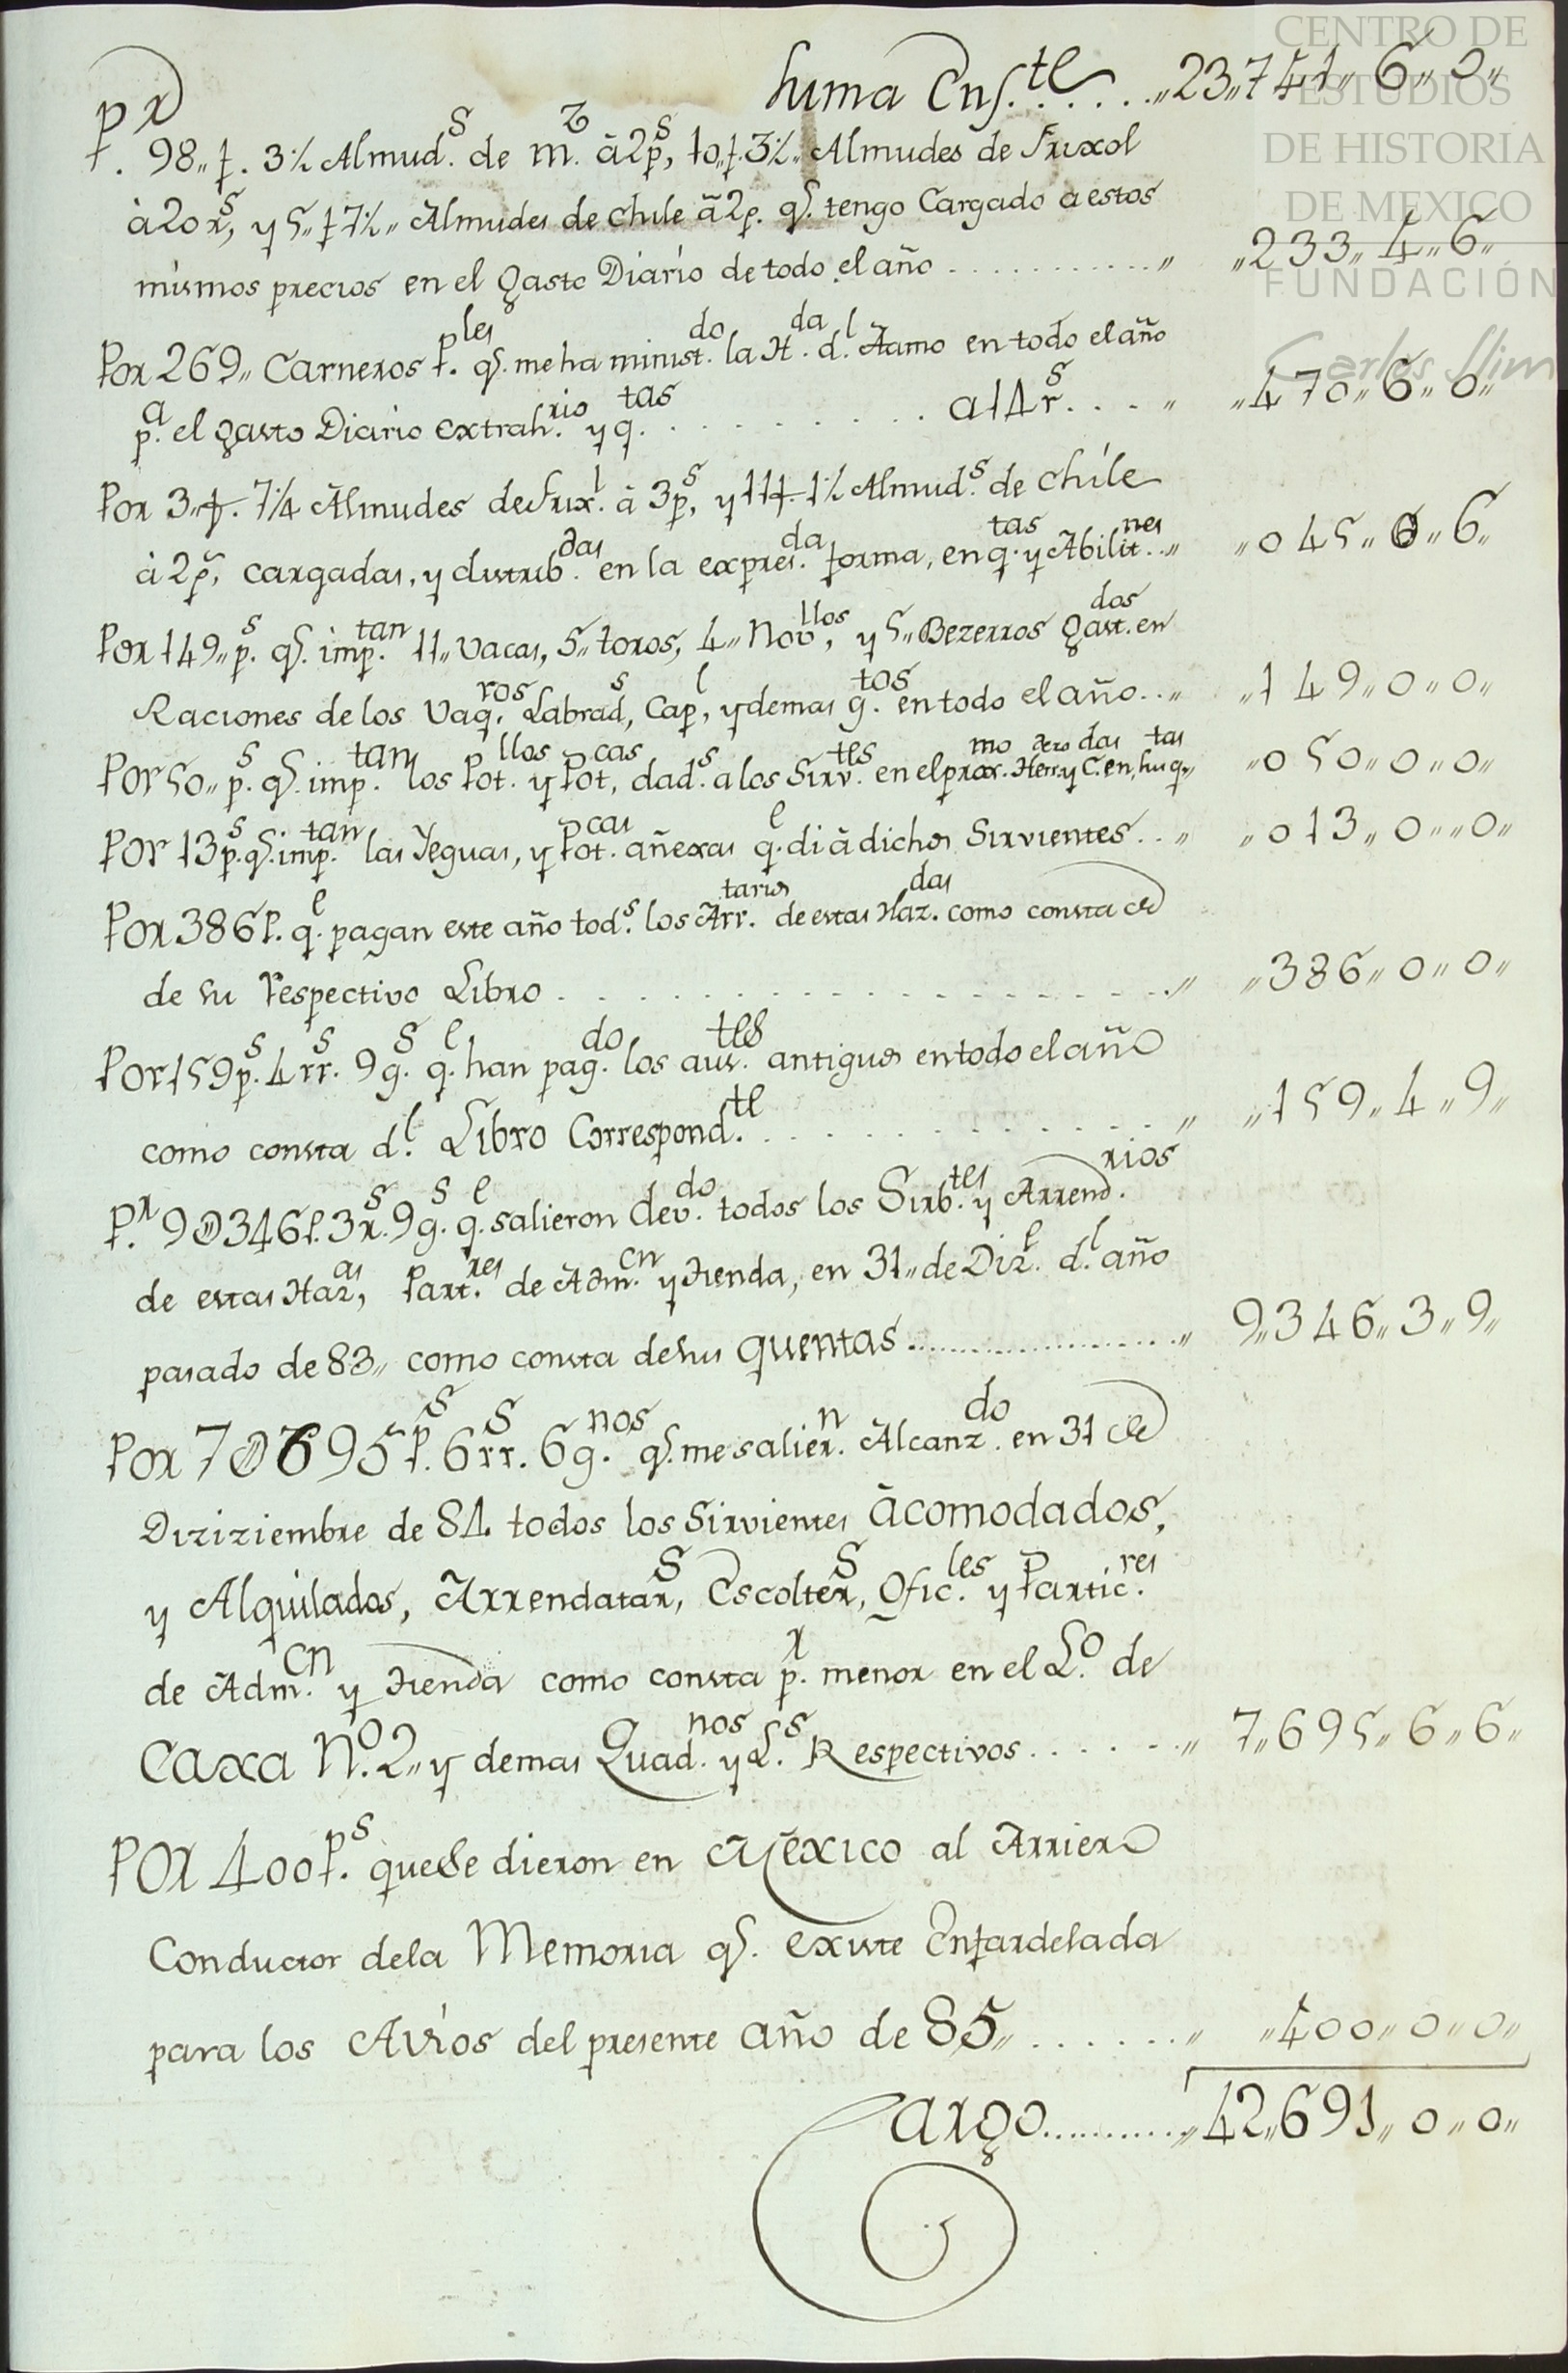 CENTRO DE
ESTUDIOS
DE HISTORIA
DE MEXICO
FUNDACIÓN
Carlos Slim
Suma Enf.te ......,,23,,741,,6,,0,,
p.r 98,,f. 3½ Almud.s de m.z â 2p.s, 10,,f.3½,, Almudes de Frixol
â 20 r.s, y 5,,f 7½,, Almudes de Chile â 2p. q.e tengo Cargado a estos
mismos precios en el gasto Diario de todo el año ...........,, ,,233,,4,,6,,
Por 269,, Carneros P.les q.e me ha minist.do la H.da d.l Ãamo en todo el año
p.a el gasto Diario extrah.rio y q.tas .......... a 14 r.s ....,, ,,470,,6,,0,,
Por 3,,f. 7¼ Almudes de Frix.l â 3p.s, y 11f 1½ Almud.s de chíle
â 2p.s, cargadas, y distrib.das en la expres.da forma, en q.tas y Abilit.nes..,, ,,045,,0,,6,,
Por 149,,p.s q.e imp.tan 11,, Vacas, 5,, toros, 4,, Nov.llos, y 5,, Bezerros gast.dos en
Raciones de los Vaq.ros Labrad.s, Cap.l, y demas g.tos en todo el año..,, ,,149,,0,,0,,
Por 50,, p.s q.e imp.tan los Pot.llos y Pot.cas, dad.s a los Sirv.tes en el prox.mo Herr.dero y C.das en sus q.tas,, ,,050,,0,,0,,
Por 13 p.s q.e imp.tan las Yeguas, y Pot.cas añexas q.e di â dichos Sirvientes..,, ,,013,,0,,,,0,,
Por 386 P. q.e pagan este año tod.s los Arr.tarios de estas Haz.das como consta de
de su Respectivo Libro ....................,, ,,386,,0,,0,,
Por 159 p.s 4 rr.s 9 g.s q.e han pag.do los aus.tes antiguos en todo el año
como consta d.l Libro Correspond.te ...............,, ,,159,,4,,9,,
P.r 9Ø346 P. 3 r.s 9 g.s q.e salieron dev.do todos los Sirb.tes y Arrend.rios
de estas Haz.as, Part.res de Adm.cn y tienda, en 31,, de Diz.e d.l año
pasado de 83,, como consta de sus quentas ....................,, 9,,346,,3,,9,,
Por 7Ø695 P.s 6 rr.s 6 g.nos q.e me salier.n Alcanz.do en 31 de
Diziziembre de 84. todos los Sirvientes âcomodados,
y Alquilados, Arrendatar.s, Escolter.s, Ofic.les y Partic.res
de Adm.cn y tienda como consta p.r menor en el L.o de
Caxa N.o 2,, y demas Quad.nos y L.s Respectivos .......,, 7,,695,,6,,6,,
Por 400 P.s que se dieron en México al Arriero
Conductor de la Memoria q.e existe Enfardelada
para los Avíos del presente año de 85,, .......,, ,,400,,0,,0,,
Cargo..........,,42,,691,,0,,0,,